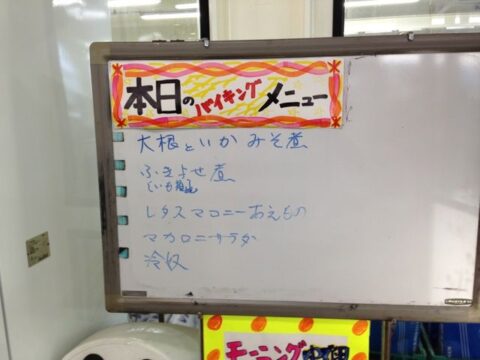 本日のバイキングメニュー
大根といかみそ煮
ふきよせ煮
レタスマコニーあえもの
マカロニサラダ
冷奴
モーニング